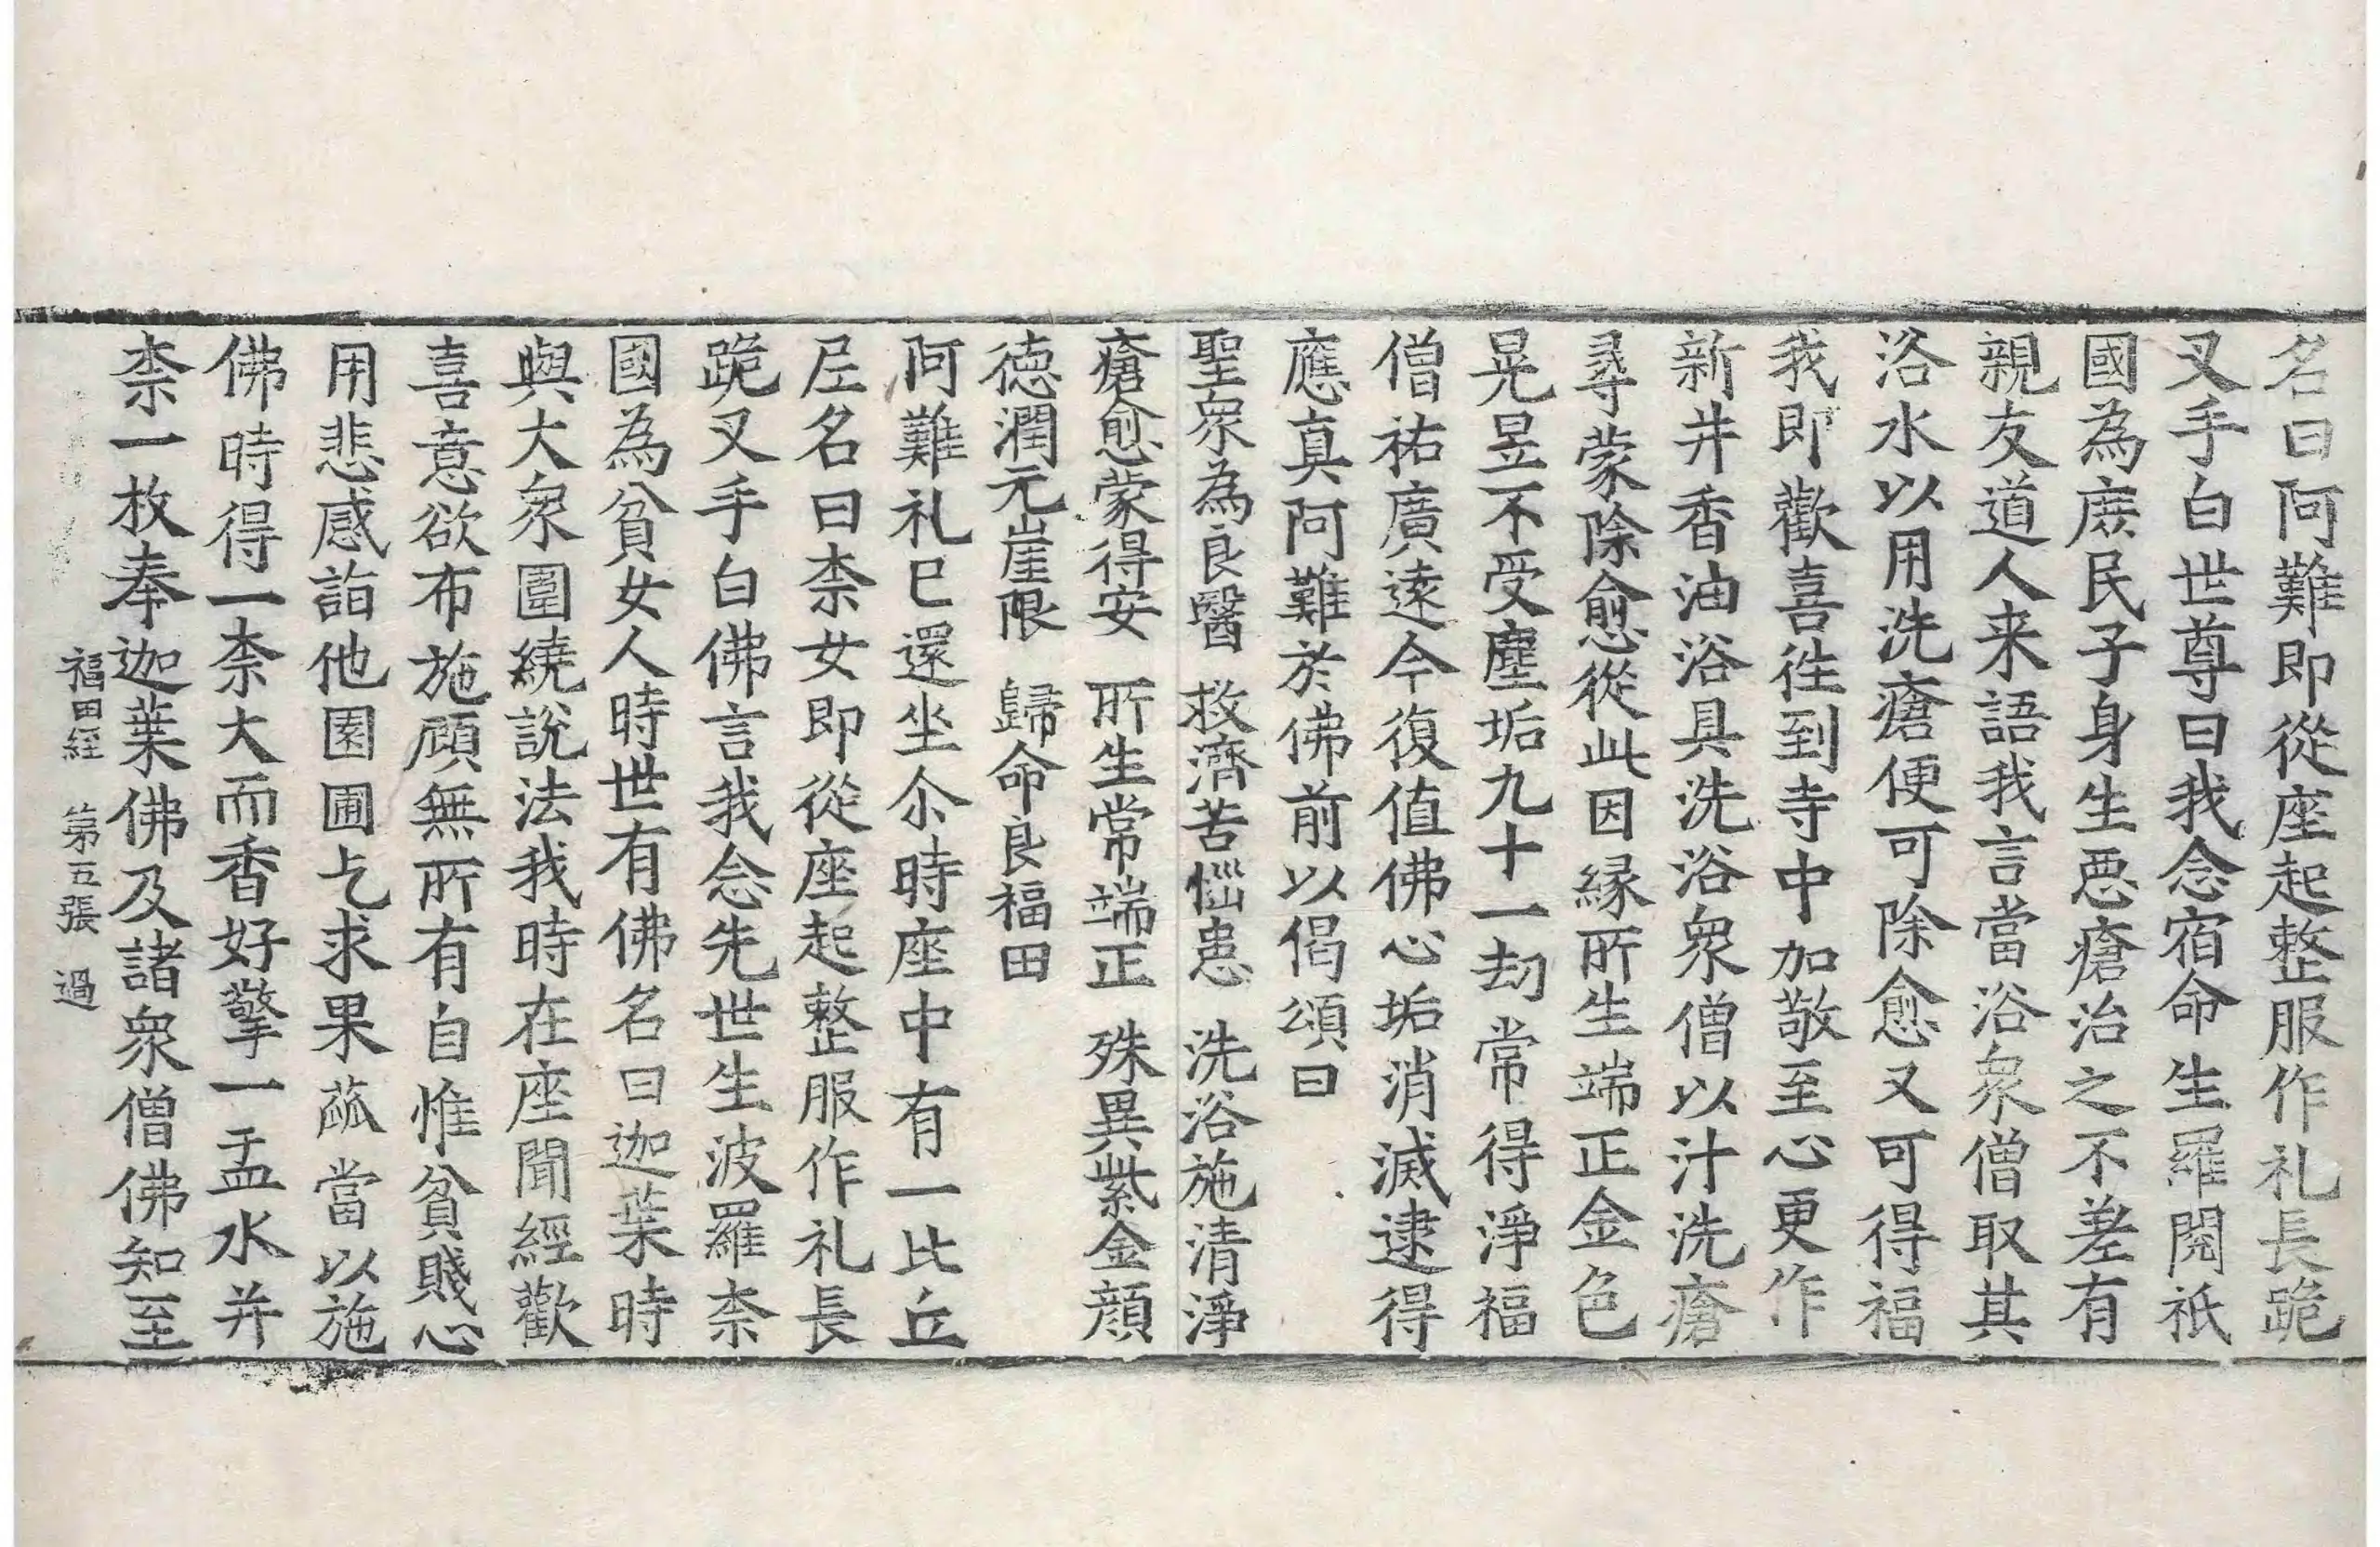 名曰阿難即從座起整服作礼長跪
叉手白世尊曰我念宿命生羅閱祇
國為庶民子身生惡瘡治之不差有
親友道人来語我言當浴衆僧取其
洛水以用洗瘡便可除愈又可得福
我即歡喜往到寺中加敬至心更作
新井香油浴具洗浴衆僧以汁洗瘡
尋蒙除愈從此因緣所生端正金色
晃昱不受塵垢九十一劫常得淨福
僧祐廣遠今復值佛心垢消滅逮得
應真阿難於佛前以偈頌曰
聖衆為良醫　救濟苦惱患　洗浴施清淨
瘡愈蒙得安　所生常端正　殊異紫金顔
德潤无崖限　歸命良福田
阿難礼已還坐尒時座中有一比丘
尼名曰柰女即從座起整服作礼長
跪叉手白佛言我念先世生波羅柰
國為貧女人時世有佛名曰迦葉時
與大衆圍繞說法我時在座聞經歡
喜意欲布施顧無所有自惟貧賤心
用悲感詣他園圃乞求果蓏當以施
佛時得一柰大而香好擎一盂水并
柰一枚奉迦葉佛及諸衆僧佛知至
福田經　第五張　過